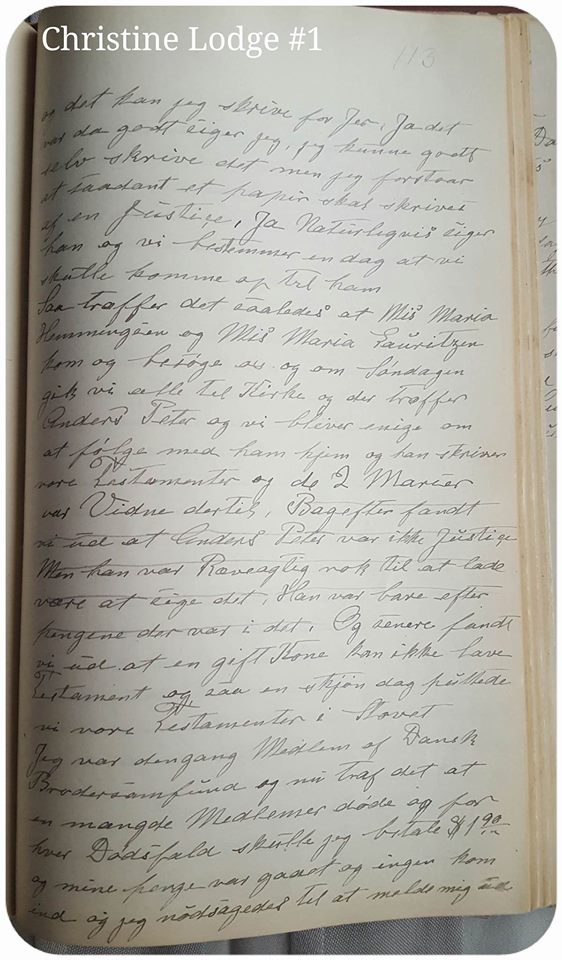 Christine Lodge #1
113
og det kan jeg skrive for Jer, Ja det
var da godt siger jeg, jeg kunne godt
selv skrive det men jeg forstaar
at saadant et papir skal skrives
af en Justice, Ja Naturligvis siger
han og vi bestemmer en dag at vi
skulle komme op til ham
Saa træffer det saaledes at Mis Maria
Hemmingsen og Mis Maria Lauritzen
kom og besøge os og om Søndagen
gik vi alle til Kirke og der træffer
Anders Peter og vi bliver enige om
at følge med ham hjem og han skriver
vore Testamenter og de 2 Marier
var Vidne dertil, Bagefter fandt
vi ud at Anders Peter var ikke Justice
Men han var Ræveagtig nok til at lade
være at sige det, Han var bare efter
pengene der var i det, Og senere fandt
vi ud at en gift Kone kan ikke lave
Testament og saa en skjøn dag puttede
vi vore Testamenter i Stovet
Jeg var dengang Medlem af Dansk
Brodersamfund og nu traf det at
en mængde Medlemer døde og for
hver Dødsfald skulle jeg betale $1
og mine penge var gaaet og ingen kom
ind og jeg nødsagedes til at melde mig ud